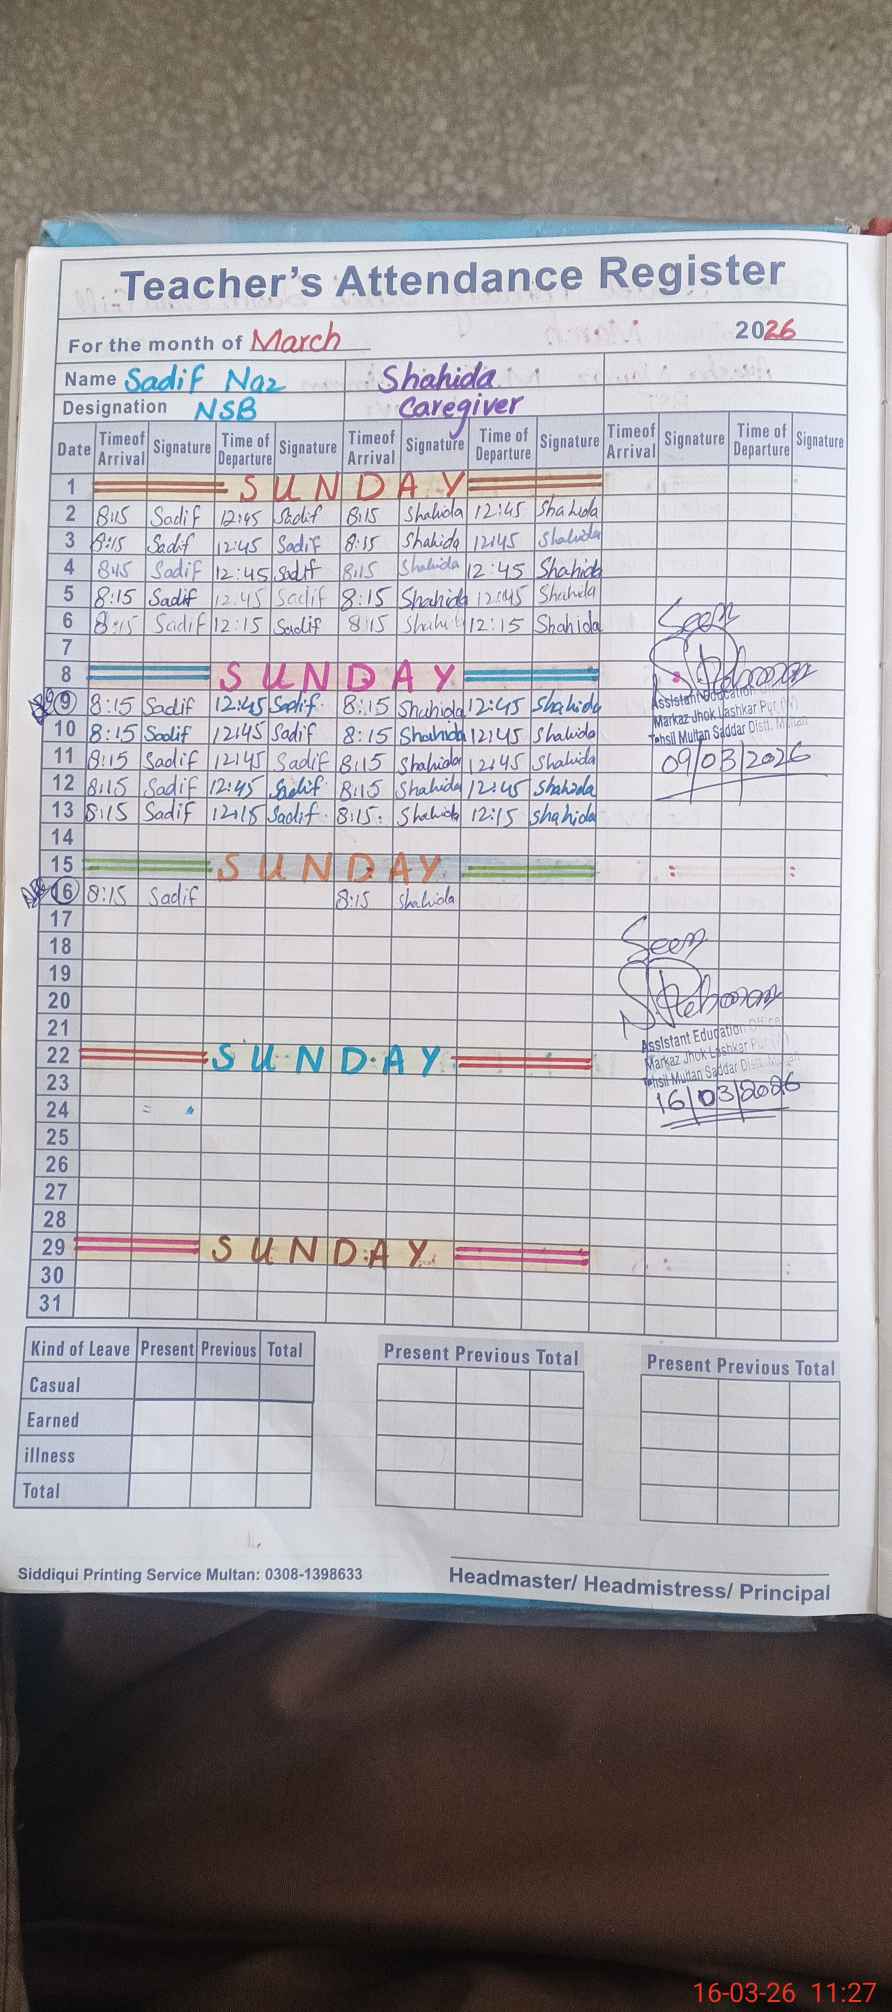 Teacher's Attendance Register
For the month of March 2026
Name Sadif Naz Shahida
Designation NSB Caregiver
Date Time of Arrival Signature Time of Departure Signature Time of Arrival Signature Time of Departure Signature Time of Arrival Signature Time of Departure Signature
1 SUNDAY
2 8:15 Sadif 12:45 Sadif 8:15 Shahida 12:45 Shahida
3 8:15 Sadif 12:45 Sadif 8:15 Shahida 12:45 Shahida
4 8:15 Sadif 12:45 Sadif 8:15 Shahida 12:45 Shahida
5 8:15 Sadif 12:45 Sadif 8:15 Shahida 12:45 Shahida
6 8:15 Sadif 12:15 Sadif 8:15 Shahida 12:15 Shahida
Seen
7
8 SUNDAY
9 8:15 Sadif 12:45 Sadif 8:15 Shahida 12:45 Shahida
Assistant Education
10 8:15 Sadif 12:45 Sadif 8:15 Shahida 12:45 Shahida
Markaz Jhok Lashkar Pur (W)
Tehsil Multan Saddar Distt. Multan
11 8:15 Sadif 12:45 Sadif 8:15 Shahida 12:45 Shahida
09/03/2026
12 8:15 Sadif 12:45 Sadif 8:15 Shahida 12:45 Shahida
13 8:15 Sadif 12:15 Sadif 8:15 Shahida 12:15 Shahida
14
15 SUNDAY
16 8:15 Sadif 8:15 Shahida
17
18
Seen
19
20
21
Assistant Education Office
22 SUNDAY
Markaz Jhok Lashkar Pur
Tehsil Multan Saddar Distt. Multan
23
16/03/2026
24
25
26
27
28
29 SUNDAY
30
31
Kind of Leave Present Previous Total Present Previous Total Present Previous Total
Casual
Earned
illness
Total
Siddiqui Printing Service Multan: 0308-1398633
Headmaster/ Headmistress/ Principal
16-03-26 11:27